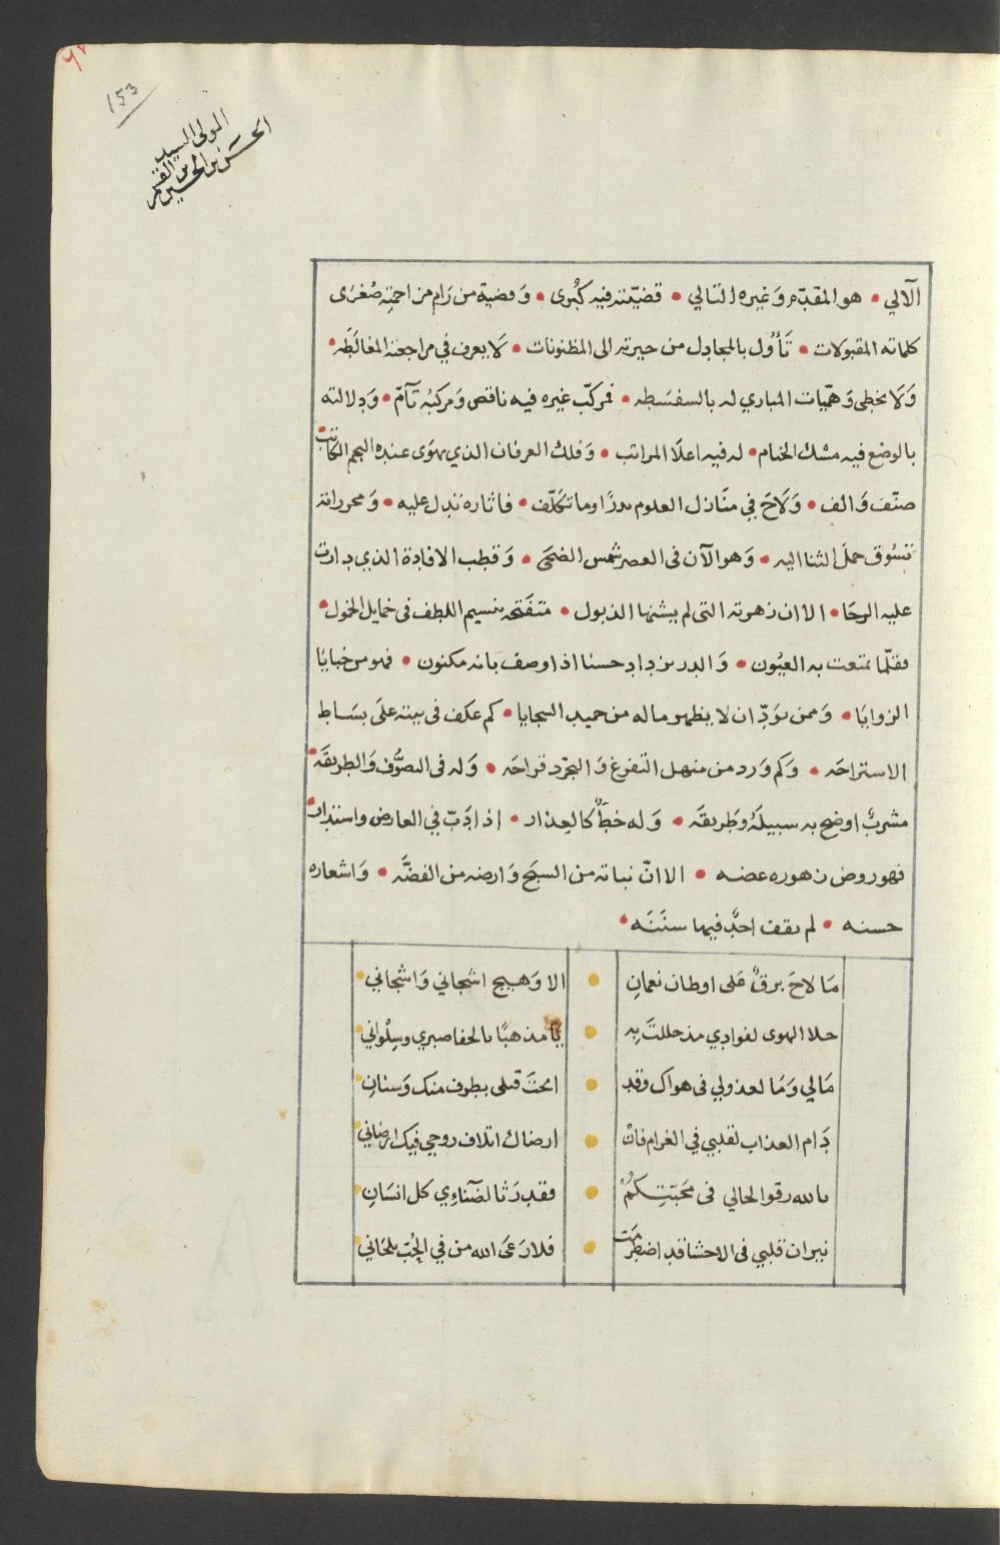 153
المولى السيد
الحسن بن الحسين بن القسم
الآلي • هو المقدّم وَغيره التالي • قضيّته فيه كبُرى • وَقضية من رَام مزاحمته صُغرَى
كلماته المقبولات • تَأول بالمجادل من حيرته الى المظنونات • لَا يعرف في مراجعته المغالَطَه •
وَلَا يخطى وَهميّات المباري له بالسفسَطه • فمركبّ غيره فيه ناقص وَمركبُه تَآمّ • وَدلالته
بالوضع فيه مسْك الختام • له فيه اعلَا المراتب • وَفلك العرفان الذي يهوَى عنده النجم الكاتب •
صنّف وَالف • وَلَاحَ في منَازل العلوم بدرًا وما تكلّف • فاثاره تدل عليه • وَمحرراته
تسُوق حملَ الثنا اليه • وَهو الآن فى العصر شمس الضحَى • وَقطب الافادة الذي دارت
عليه الرحَا • الا ان زهرته التى لم يشنها الذبول • متفَتحه بنسيم اللطف فى خمايل الخمول •
فقلّما تمتعت به العيُون • وَالدر يزداد حسنا اذا وصف بانه مكنون • فهو من خبايَا
الزوايَا • وَممن يوَدّ ان لا يظهر ماله من حميد السجايا • كم عكف فى بيته علَى بسَاط
الاستراحَه • وَكم وَرد من منهل التفرغ وَالتجرّد قراحَه • وَله فى التصوُّف وَالطريقَه •
مشربٌ اوضح به سبيلَهُ وَطَريقهَ • وَله خطٌّ كالعذار • اذا دَبّ في العارض واستدار •
فهو روض زهوره غضه • الا انّ نباته من السبَج وَارضه من الفضَّه • وَاشعاره
حسنه • لم يقف احدٌ فيها سنَنَه •
مَا لاحَ برقٌ عَلى اوطان نعمانِ • الا وَهيج اشجاني وَاشجاني •
حلا الهوى لفوادي مذ حللتَ بِه • يا مذهبًا بالجفا صبري وسلْوانِي •
مَالي وَمَا لعذولي فى هواك وقد • ابحتَ قتلى بطرف منك وَسنانِ •
دَام العذاب لقلبي في الغرام فان • ارضاك اتلاف روحي فيك ارضاني •
بالله رقو الحالي فى محَبّتِكمُ • فقد رَثا لضَناءِي كل انسَانِ •
نيران قلبي فى الاحشا قد اضطرَمَت • فلا رَعَى الله من في الحُبّ يلحَاني •